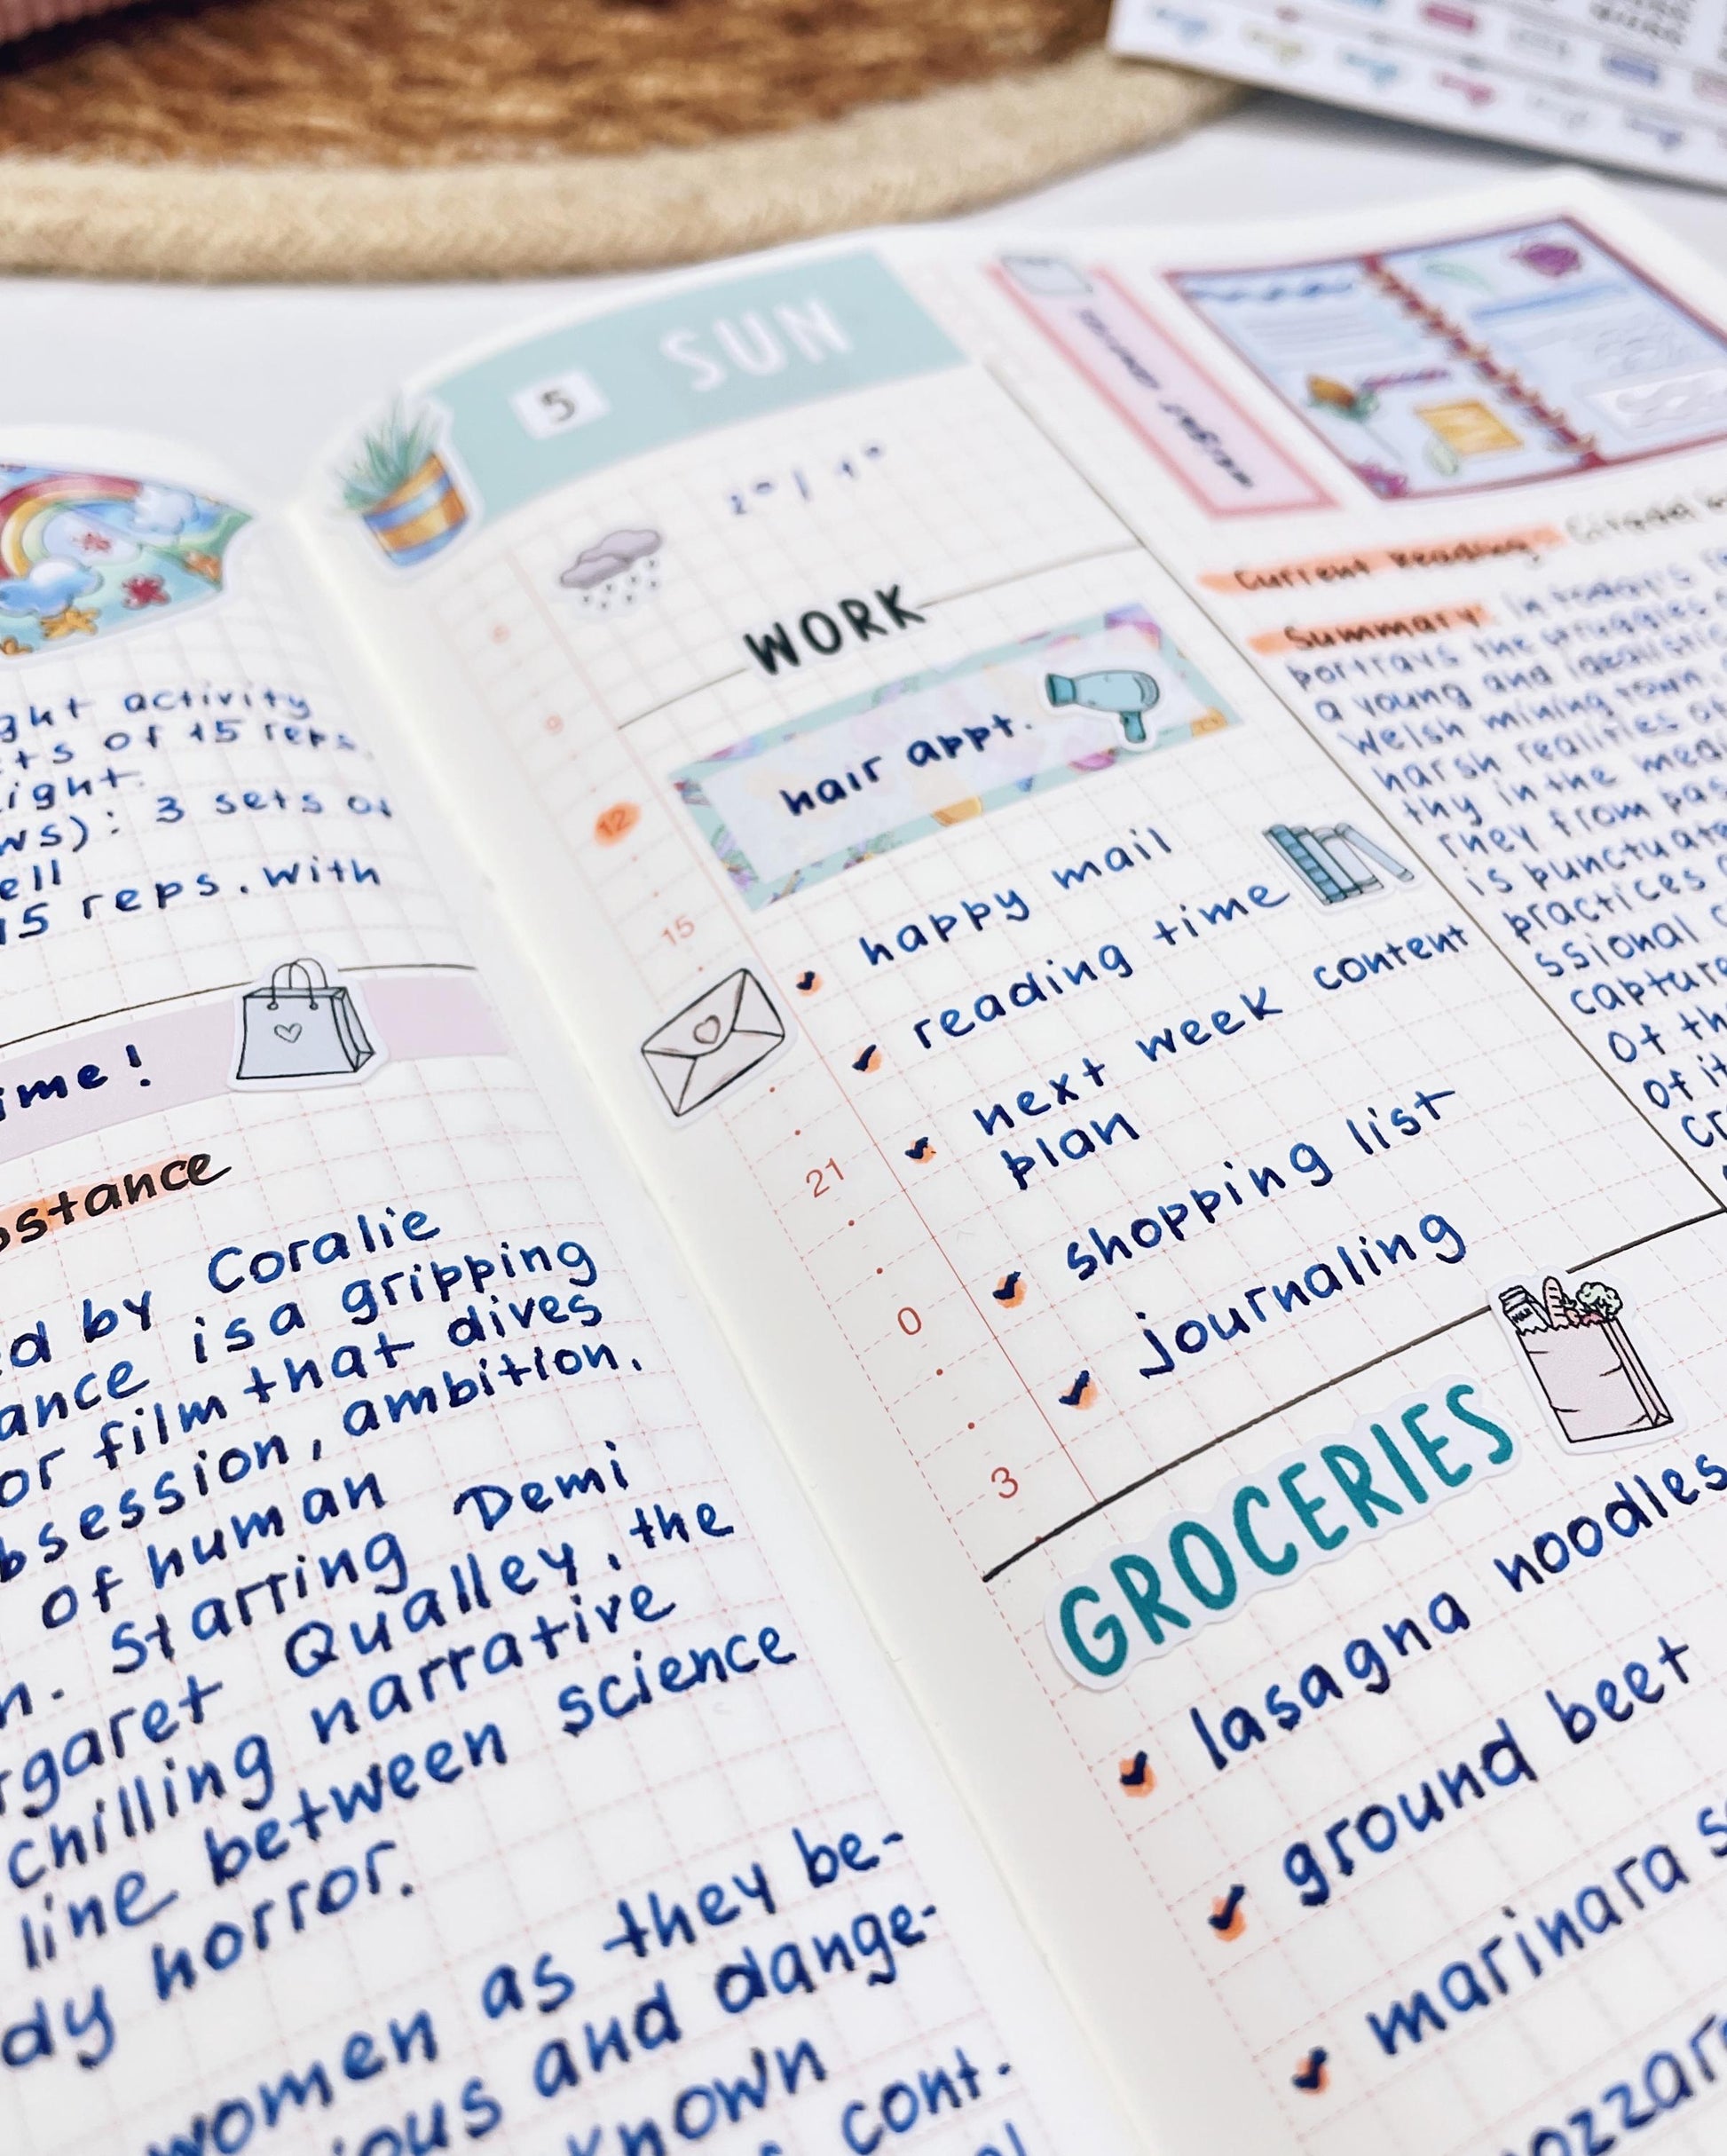 ght activity
ts of 15 reps
ight.
ws): 3 sets of
ell
15 reps. with
ime!
bstance
ed by Coralie
ance is a gripping
or film that dives
bsession, ambition,
of human
n. Starring Demi
rgaret Qualley, the
chilling narrative
line between science
dy horror.
women as they be-
ious and dange-
known
cont.
5 SUN
WORK
hair appt.
9
12
15
21
0
3
happy mail
reading time
next week content
plan
shopping list
journaling
GROCERIES
lasagna noodles
ground beet
marinara s
ozzar
Current Reading: Citadel
Summary: In today's
portrays the struggles
a young and idealistic
Welsh mining town.
harsh realities of
thy in the medi
rney from pas
is punctuate
practices
ssional c
capture
of th
of it
cr